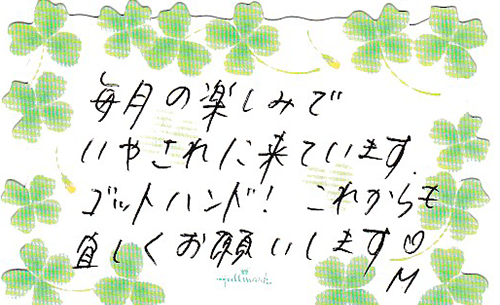 毎月の楽しみで
いやされに来ています.
ゴットハンド! これからも
宜しくお願いします♡
M
Hallmark